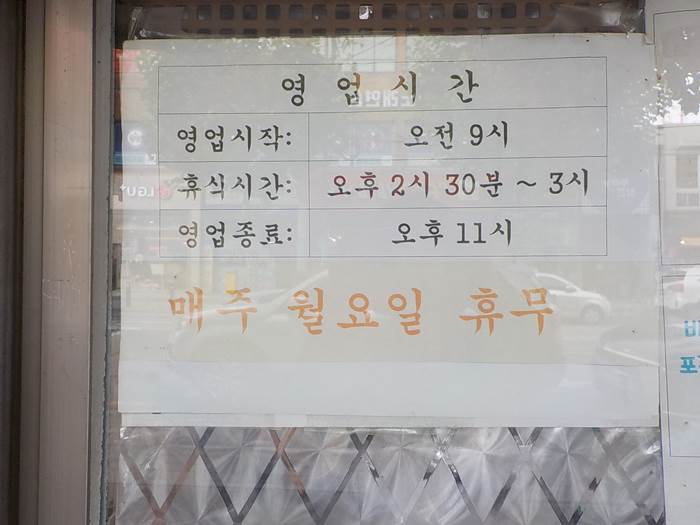 영 업 시 간
영업시작: 오전 9시
휴식시간: 오후 2시 30분 ~ 3시
영업종료: 오후 11시
매주 월요일 휴무
LGU+